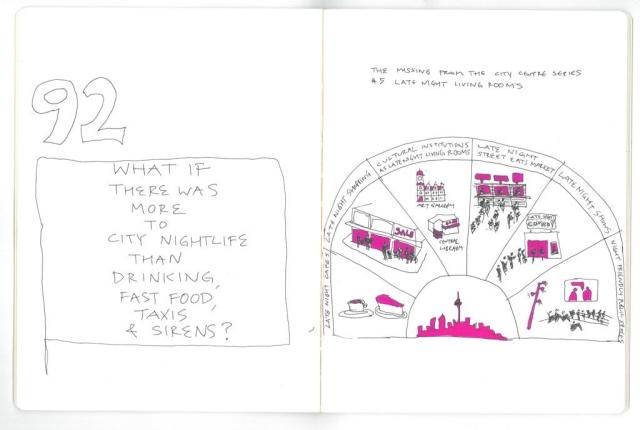 92
WHAT IF
THERE WAS
MORE
TO
CITY NIGHTLIFE
THAN
DRINKING,
FAST FOOD,
TAXIS
& SIRENS?
THE MISSING FROM THE CITY CENTRE SERIES
#5 LATE NIGHT LIVING ROOMS
LATE NIGHT CAFES
LATE NIGHT SHOPPING
CULTURAL INSTITUTIONS
AS LATE NIGHT LIVING ROOMS
LATE NIGHT
STREET EATS MARKET
LATE NIGHT SHOWS
NIGHT FRIENDLY PUBLIC SPACES
SALE
ART GALLERY
CENTRAL
LIBRARY
LATE NIGHT
COMEDY